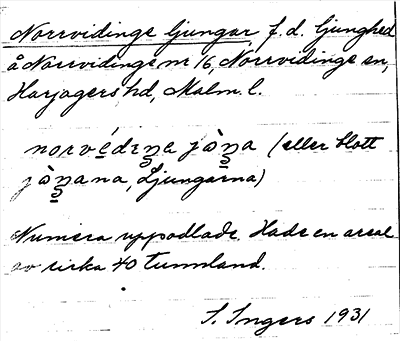 Norrvidinge ljungar, f.d. ljunghed
å Norrvidinge nr 16, Norrvidinge sn,
Harjagers hd, Malm. l.
norvédiŋa jòŋa (eller blott
jòŋana, Ljungarna)
Numera uppodlade. Hade en areal
av cirka 40 tunnland.
S. Ingers 1931